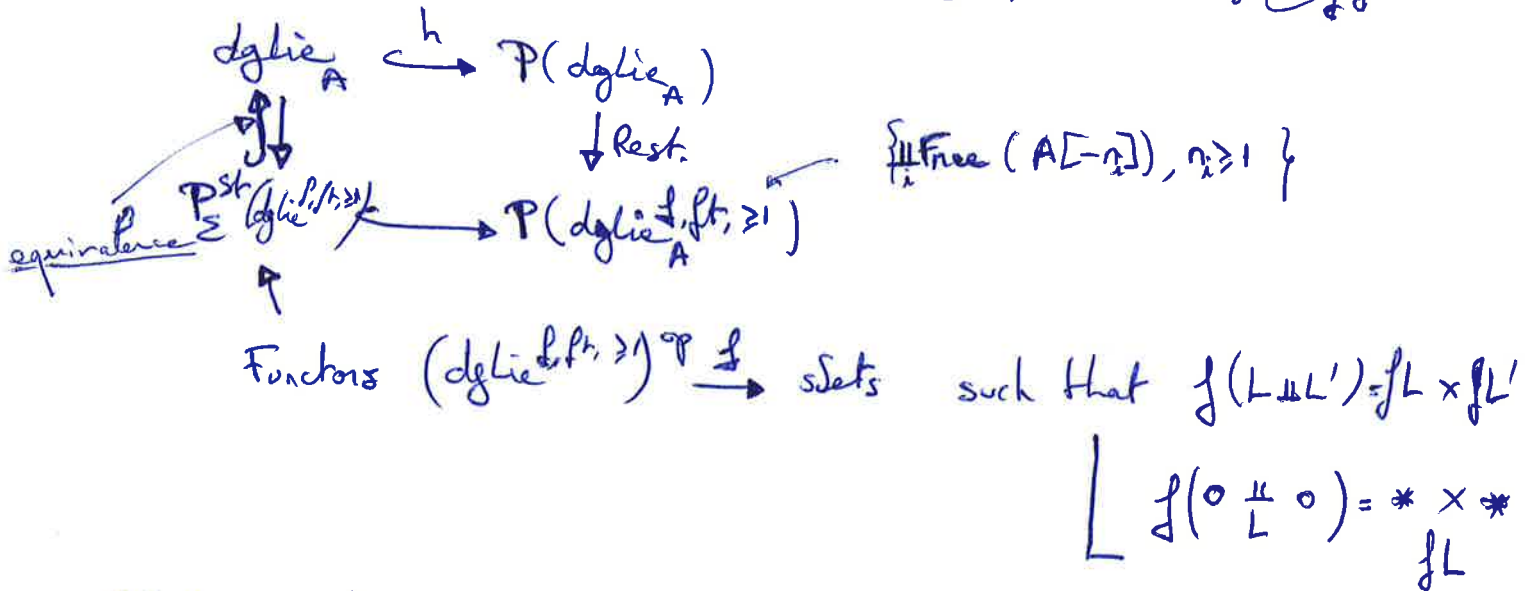 dgLie_A ↪ h P(dgLie_A)
↓ Rest.
{∐_i Free (A[-n_i]), n_i ≥ 1 }
equivalence P_Σ^{St}(dgLie^{f,ft,≥1}) → P(dgLie_A^{f,ft,≥1})
Functors (dgLie^{f,ft,≥1})^{op} →^f sSets such that f(L ⨿ L') = fL × fL'
f(0 ⨿_L 0) = * ×_{fL} *